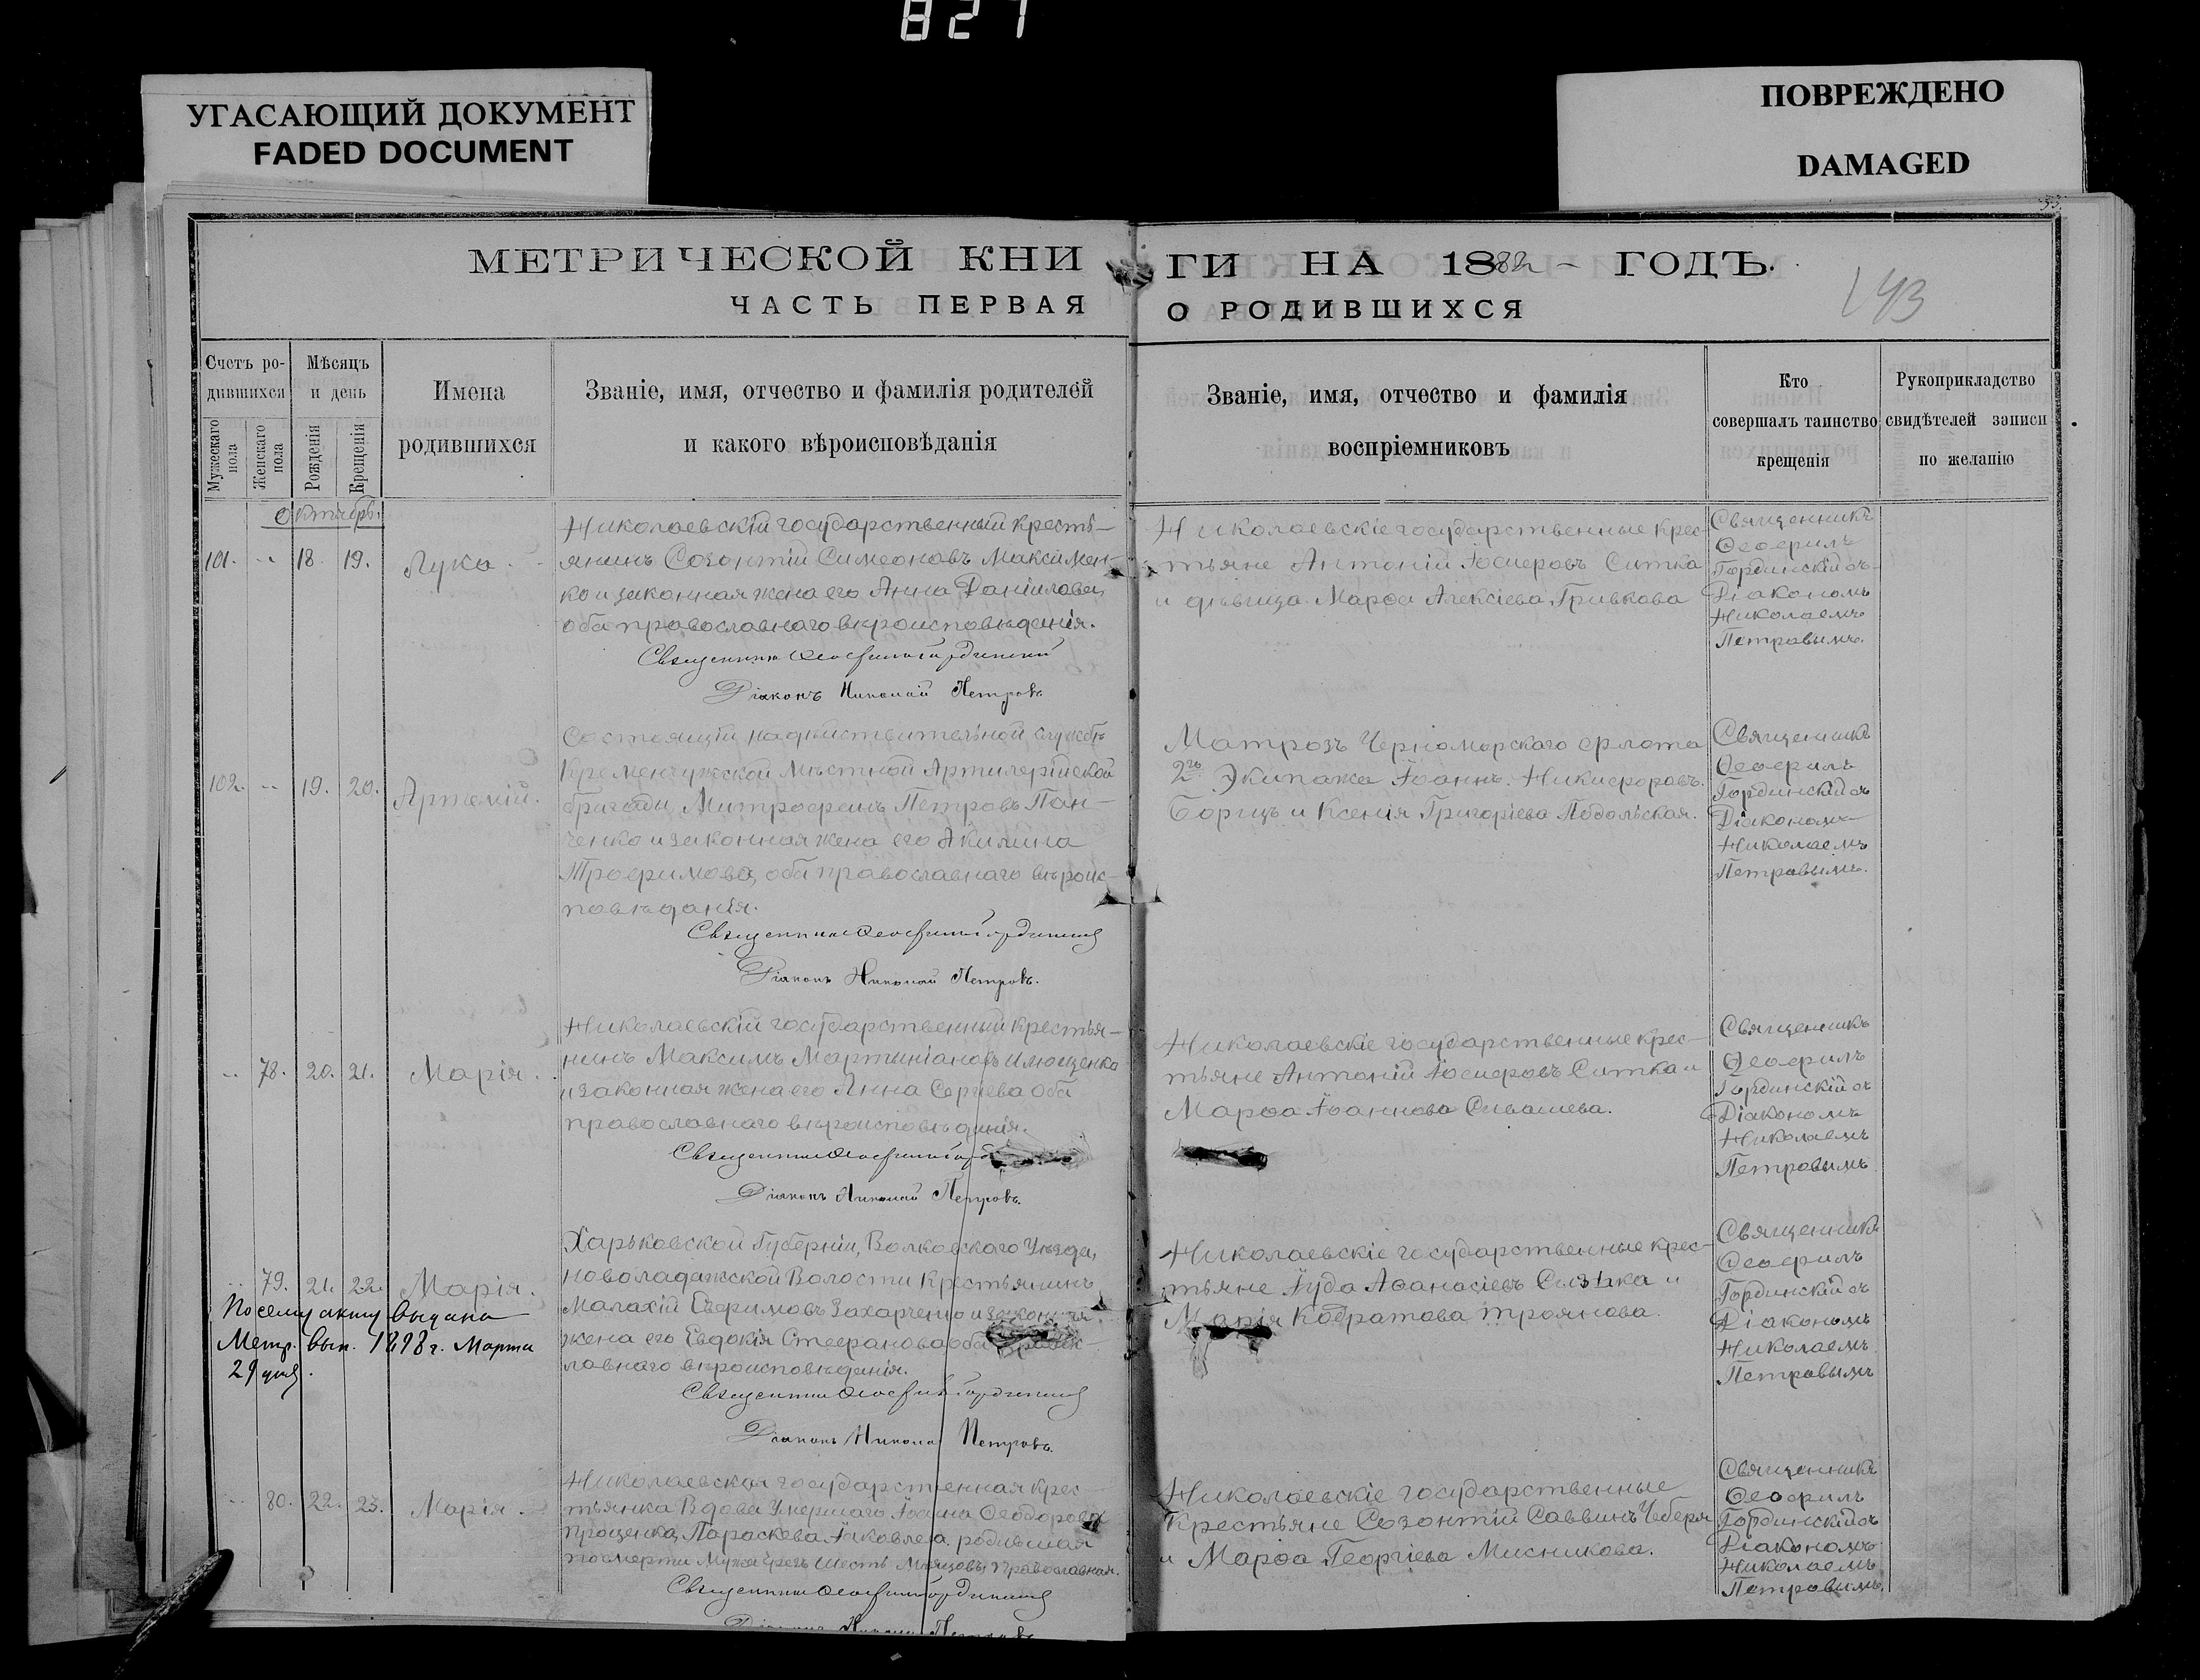 827
УГАСАЮЩИЙ ДОКУМЕНТ
FADED DOCUMENT
ПОВРЕЖДЕНО
DAMAGED
МЕТРИЧЕСКОЙ КНИ
ГИ НА 1882 ГОДЪ.
143
ЧАСТЬ ПЕРВАЯ
О РОДИВШИХСЯ
Счетъ ро-
дившихся
Мужескаго пола
Женскаго пола
Мѣсяцъ
и день
Рожденія
Крещенія
Имена
родившихся
Званіе, имя, отчество и фамилія родителей
и какого вѣроисповѣданія
Званіе, имя, отчество и фамилія
воспріемниковъ
Кто
совершалъ таинство
крещенія
Рукоприкладство
свидѣтелей записи
по желанію
Октябрь.
101. 18. 19. Лука.
Николаевскій государственный кресть-
янинъ Созонтій Симеоновъ Максимен-
ко и законная жена его Анна Даніилова,
оба православнаго вѣроисповѣданія.
Священникъ Ѳеофилъ Гординскій
Діаконъ Николай Петровъ
Николаевскіе государственные крес-
тьяне Антоній Іосифовъ Ситка
и дѣвица Марѳа Алексіева Гривкова
Священникъ
Ѳеофилъ
Гординскій съ
Діакономъ
Николаемъ
Петровымъ.
102. 19. 20. Артемій.
Состоящій на дѣйствительной службѣ
Кременчужской Мѣстной Артилерійской
бригады Митрофанъ Петровъ Пан-
ченко и законная жена его Акилина
Трофимова, оба православнаго вѣроис-
повѣданія.
Священникъ Ѳеофилъ Гординскій
Діаконъ Николай Петровъ.
Матрозъ Черноморскаго флота
2го Экипажа Іоаннъ Никифоровъ
Борщъ и Ксенія Григоріева Подольская.
Священникъ
Ѳеофилъ
Гординскій съ
Діакономъ
Николаемъ
Петровымъ.
78. 20. 21. Марія.
Николаевскій государственный крестья-
нинъ Максимъ Мартиніановъ Илющенко
и законная жена его Анна Сергіева оба
православнаго вѣроисповѣданія.
Священникъ Ѳеофилъ
Діаконъ Николай Петровъ.
Николаевскіе государственные крес-
тьяне Антоній Іосифовъ Ситка и
Марѳа Іоаннова Сивашева.
Священникъ
Ѳеофилъ
Гординскій съ
Діакономъ
Николаемъ
Петровымъ
79. 21. 22. Марія.
По сему акту выдана
Метр. вып. 1898 г. Марта
29 дня.
Харьковской Губерніи, Волковскаго Уѣзда,
Новоладажской Волости Крестьянинъ
Малахій Евфимовъ Захарченко и законная
жена его Евдокія Стефанова оба
лавнаго вѣроисповѣданія.
Священникъ Ѳеофилъ Гординскій
Діаконъ Николай Петровъ.
Николаевскіе государственные крес-
тьяне Іуда Аѳанасіевъ и
Марія Кодратова Троянова.
Священникъ
Ѳеофилъ
Гординскій съ
Діакономъ
Николаемъ
Петровымъ
80. 22. 23. Марія.
Николаевская государственная крес-
тьянка Вдова Умершаго Іоанна Ѳеодорова
Проценка, Параскева Іаковлева родившая
посмерти Мужа чрезъ Шесть Мѣяцовъ, православная.
Священникъ Ѳеофилъ Гординскій
Діаконъ Николай Петровъ
Николаевскіе государственные
Крестьяне Созонтій Саввинъ Чеберя
и Марѳа Георгіева Мисникова.
Священникъ
Ѳеофилъ
Гординскій съ
Діакономъ
Николаемъ
Петровымъ.